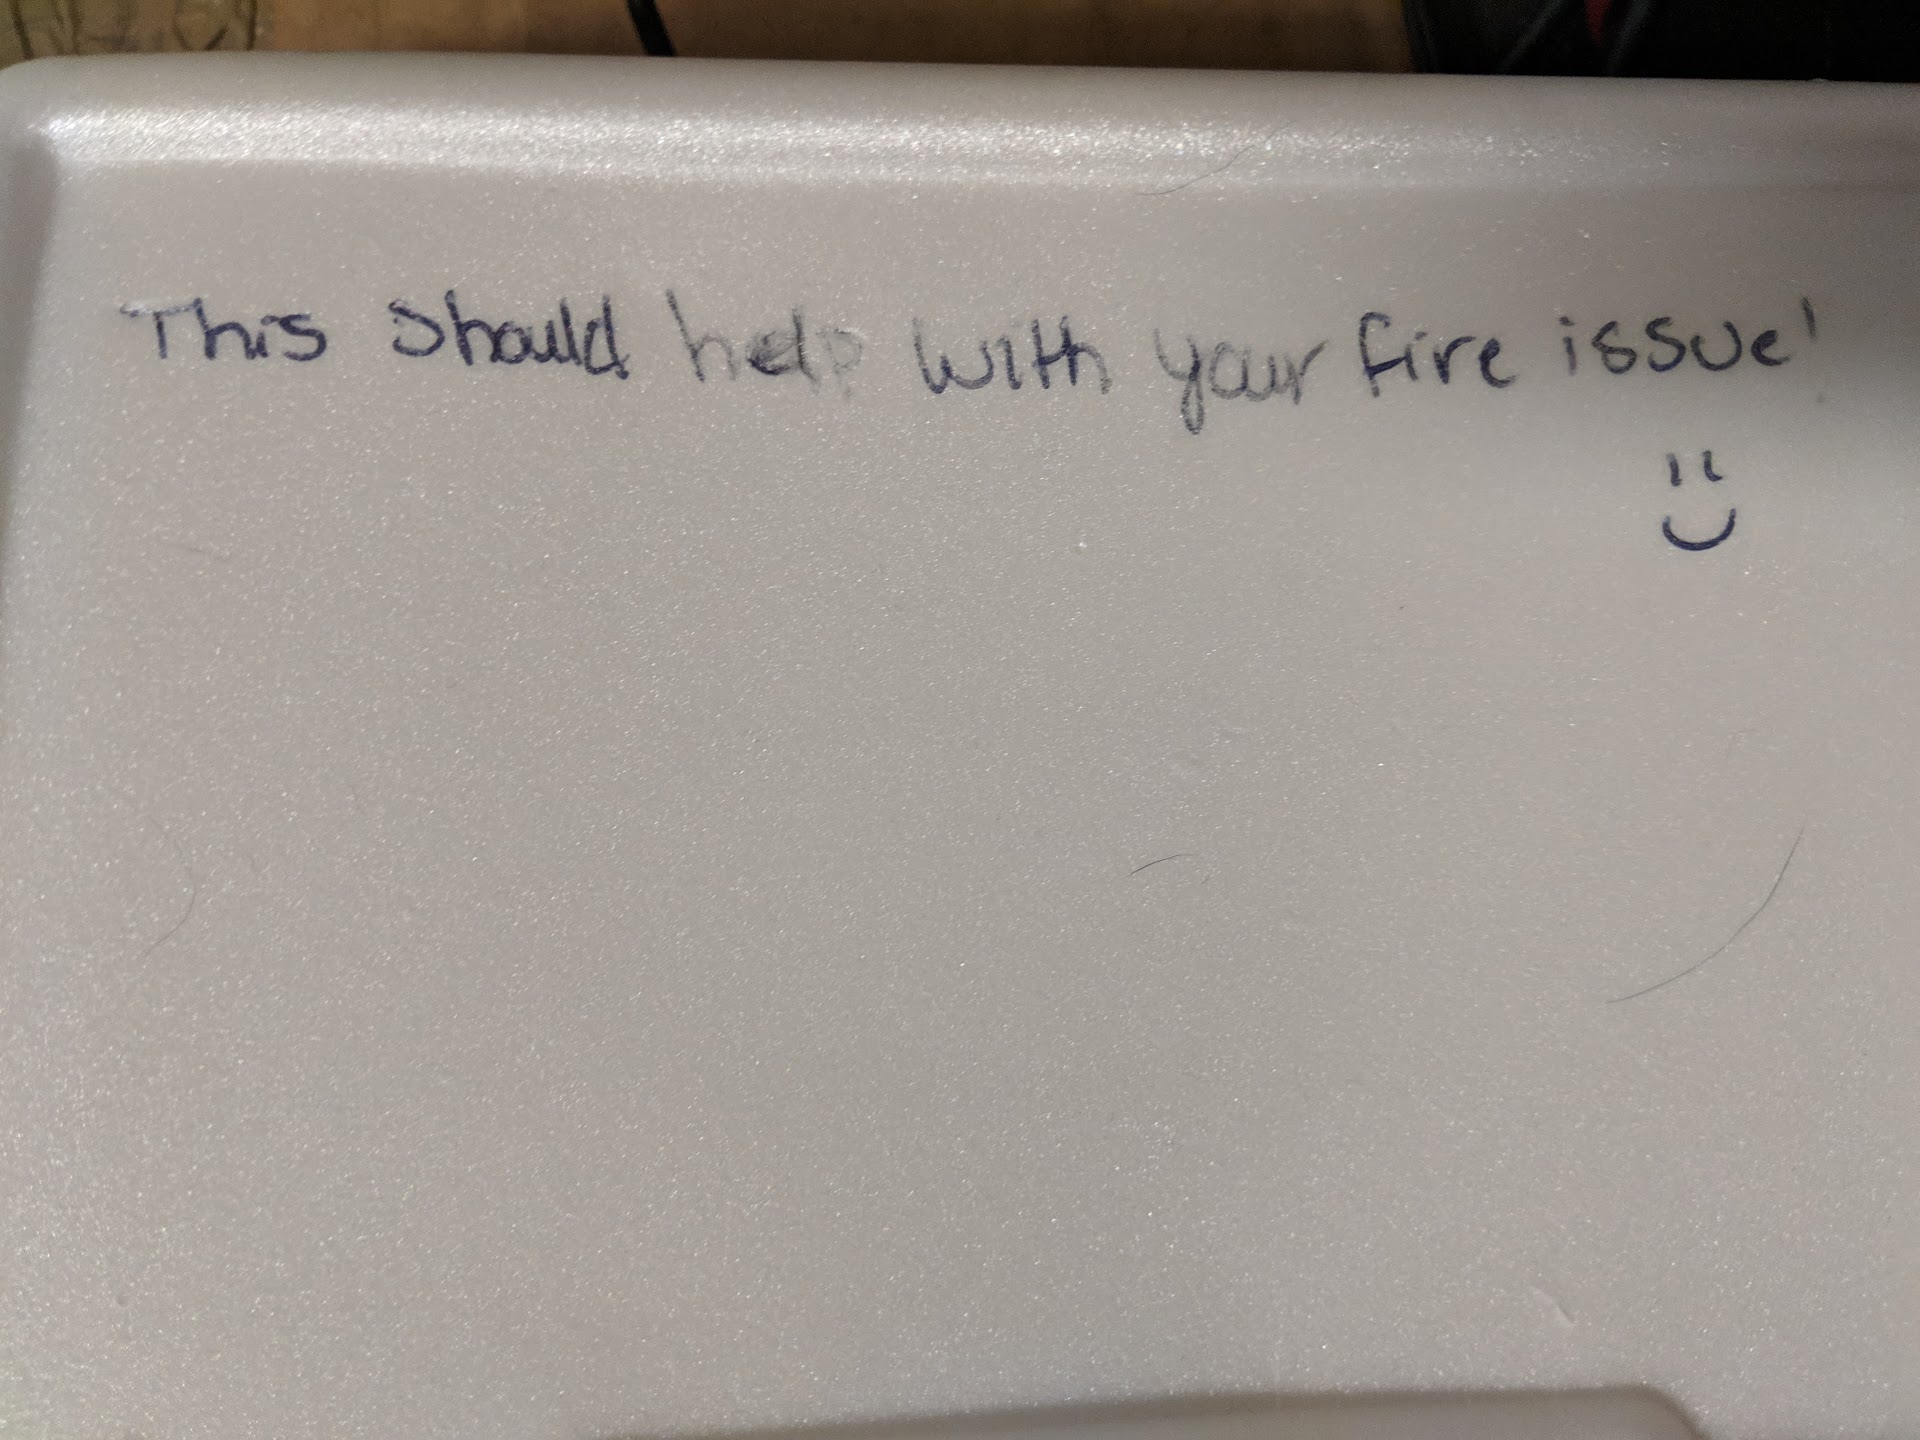 This should help with your fire issue!